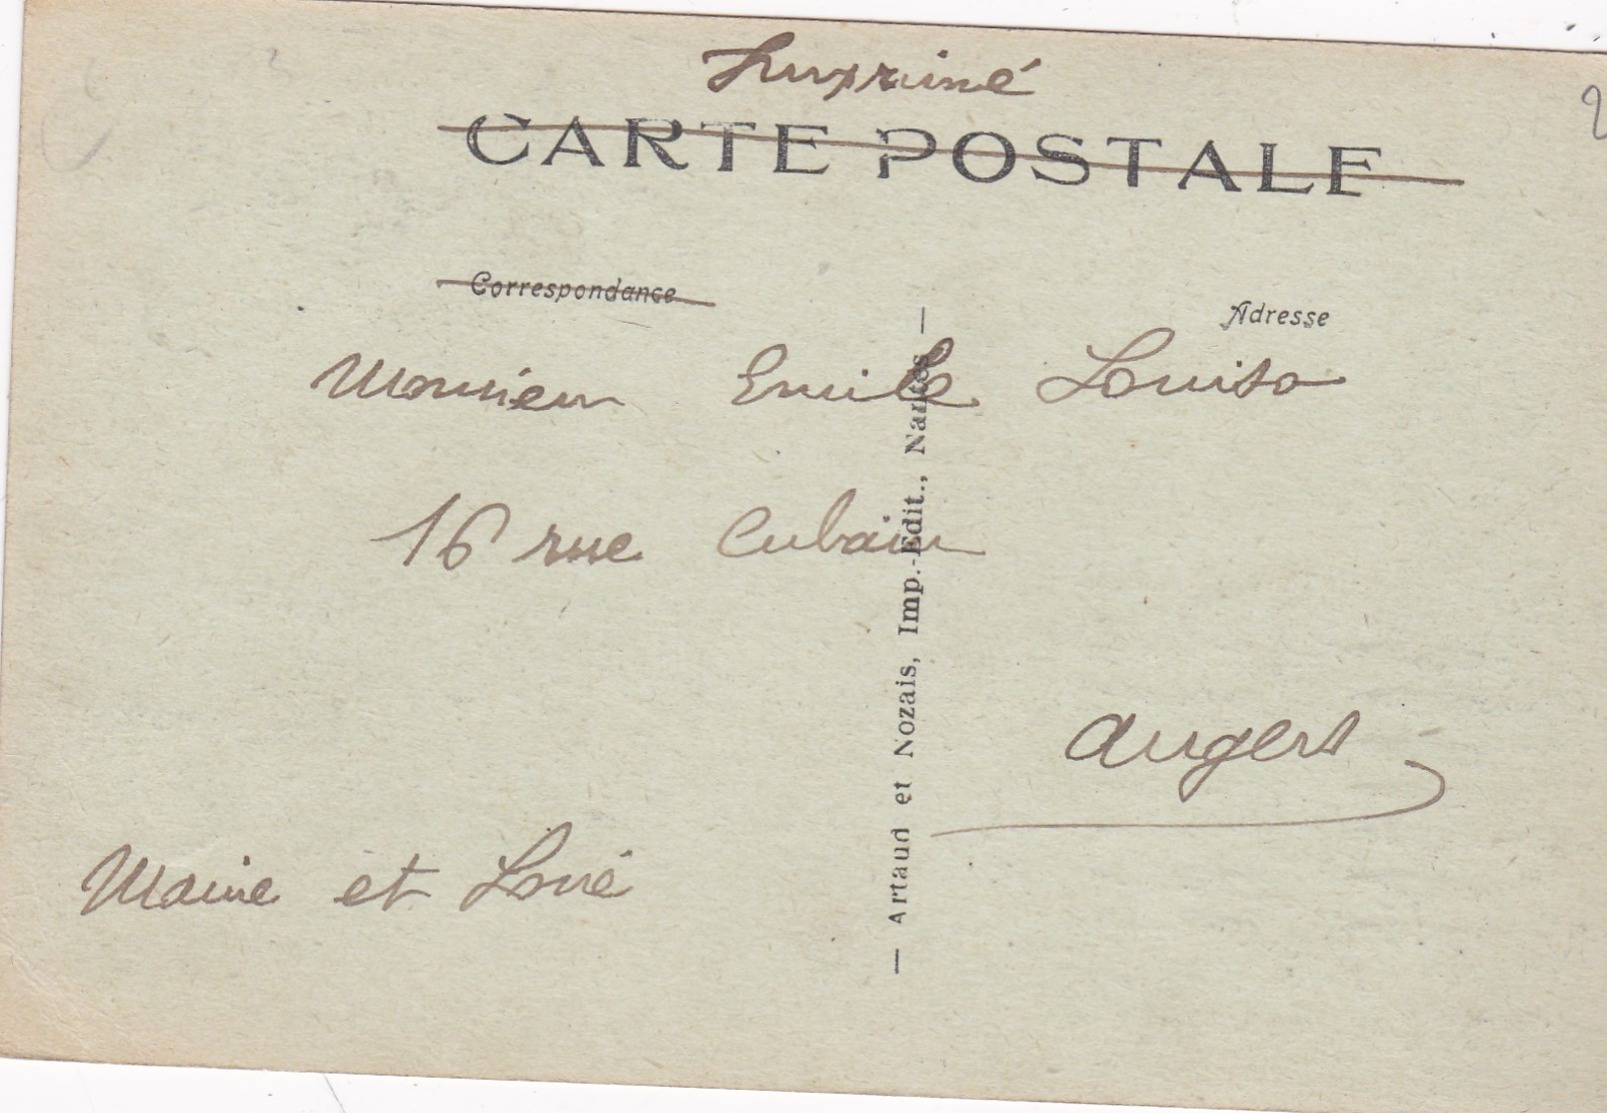 Imprimé
CARTE POSTALE
Correspondance
Adresse
Monsieur Emile
16 rue Cubain
Angers
Maine et Loire
— Artaud et Nozais, Imp.-Edit., Nantes —